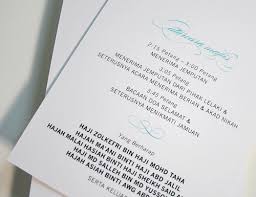 2.15 Petang - 3:00 Petang
MENERIMA JEMPUTAN
3:45 Petang
MENERIMA JEMPUTAN DARI PIHAK LELAKI &
SETERUSNYA ACARA MENERIMA BERKAH & AKAD NIKAH
3:45 Petang
BACAAN DOA SELAMAT &
SETERUSNYA MENIKMATI JAMUAN
Yang Berharap
HAJI ZOLKEFRI BIN HAJI MOHD TAHA
HAJAH MA'ANI BINTI HAJI ABD JALIL
HAJAH MALAI HASIAH BINTI HAJI SHEIKH SAID
HAJI MD SALLEH BIN MD YUSSOF
HAJAH ASIAH BINTI AWG ABD
SERTA KELUARGA